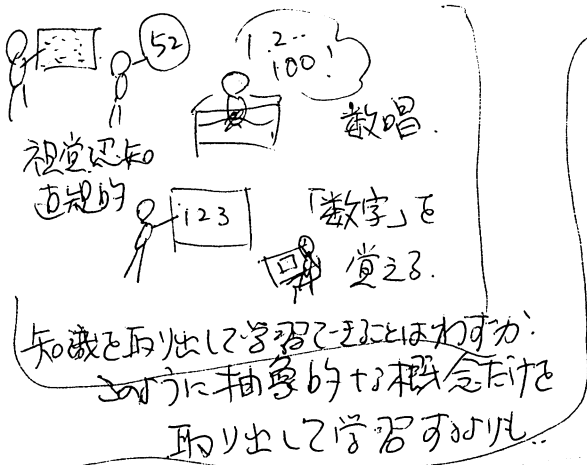 52
1.2…
100!
数唱.
視覚認知
直観的
123
「数字」を
覚える.
知識を取り出して学習できることはわずか.
このように抽象的な概念だけを
取り出して学習するよりも…